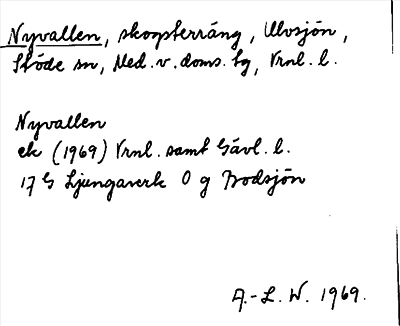 Nyvallen, skogsterräng, Ulvsjön,
Stöde sn, Med.v.doms.tg, Vrnl.l.
Nyvallen
ek (1969) Vrnl. samt Gävl.l.
17 G Ljungaverk 0 g Brodsjön
A.-L. W. 1969.